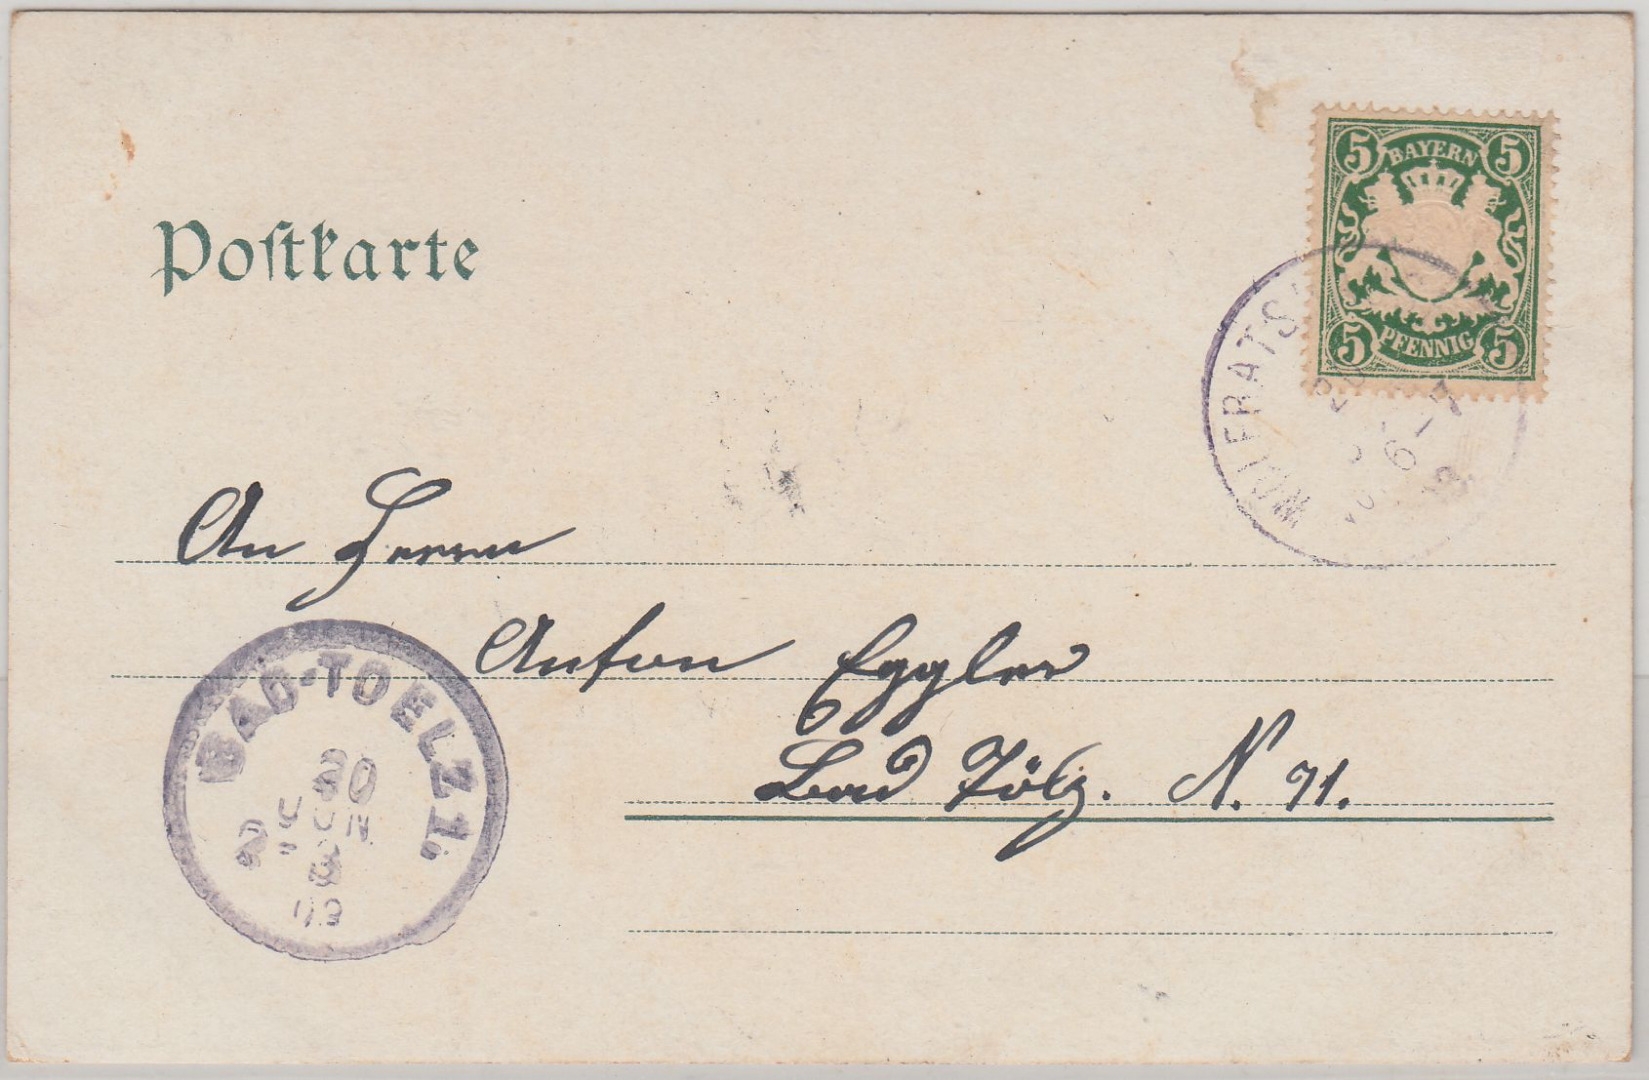 Postkarte
5 BAYERN 5
5 PFENNIG 5
An Herrn
Anton Eggler
Bad Tölz. N. 71.
BAD-TOELZ 1.
20
JUN
03